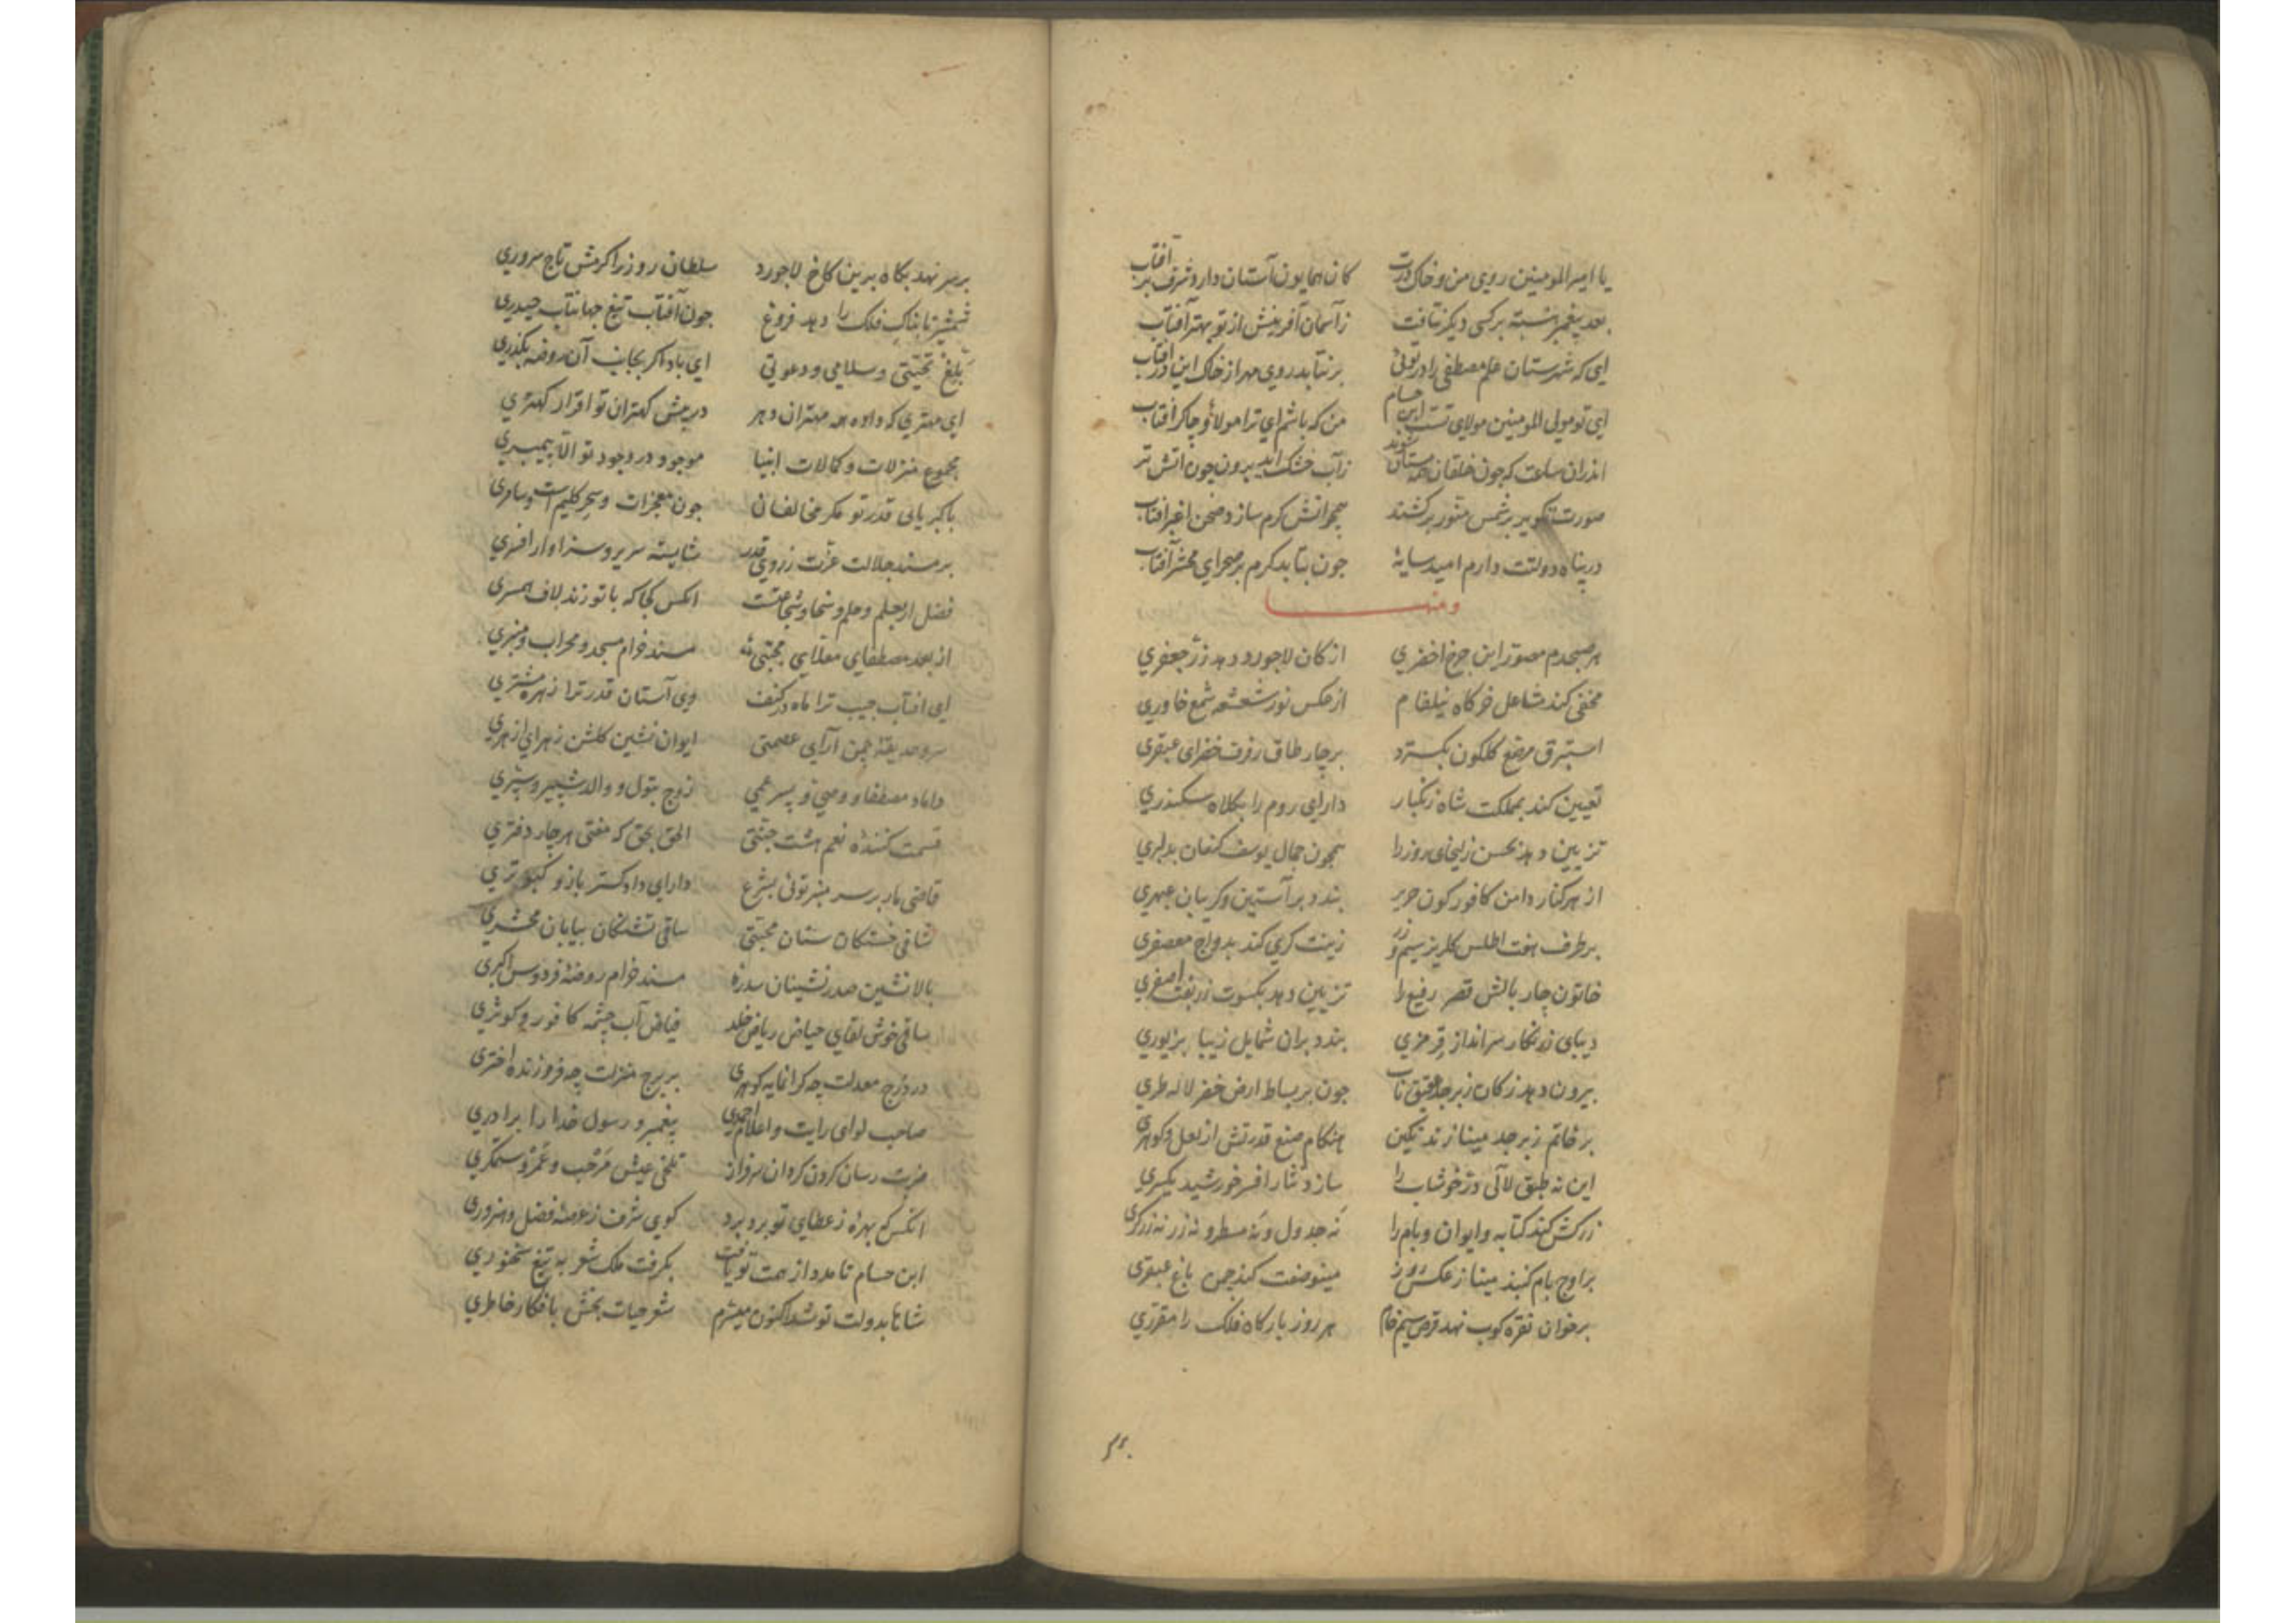 یا امیر المومنین روی من و خاک درت کان همایون آستان دارد شرف بر آفتاب
بعد پیغمبر نشسته برکسی دیکر نتافت زآسمان آفرینش از تو بهتر آفتاب
ای که شهرستان علم مصطفی را در توئی برنتابد روی مهر از خاک این در آفتاب
ای تو مولی المومنین مولای تست ابن حسام من که باشم ای ترا مولا و چاکر آفتاب
اندران ساعت که چون خلقان همه مستان شوند زآب خشک آید برون چون اتش تر
صورت تکویر بر شمس منور برکشند همچو اتش کرم سازد صحن اغبر افتاب
در پناه دولتت دارم امید سایۀ چون بتابد کرم بر صحرای محشر آفتاب
ومنها
هر صبحدم مصور این چرخ اخضری از کان لاجورد دهد زر جعفری
مخفی کند مشاعل خرکاه نیلفام از عکس نور شعشعه شمع خاوری
استبرق مرصع کلکون بکسترد بر چار طاق رفرف خضرای عبقری
تعیین کند بمملکت شاه زنکبار دارای روم را بکلاه سکندری
تزیین دهد بحسن زلیخای روز را همچون جمال یوسف کنعان بدلبری
از هر کنار دامن کافور کون حریر بندد بر آستین و کریبان عبهری
بر طرف هفت اطلس کلریز سیم و زر زینت کری کند بدواج معصفری
خاتون چار بالش قصر رفیع را تزیین دهد بکسوت زربفت اصفری
دیبای زرنکار سرانداز قرمزی بندد بران شمایل زیبا بزیوری
بیرون دهد ز کان زبرجد عقیق ناب چون بر بساط ارض خضر لاله طری
بر خاتم زبرجد مینا زند نکین هنکام صنع قدرتش از لعل و کوهری
این نه طبق لآلی در خوشاب را سازد نثار افسر خورشید یکسری
زرکش کند کتابه و ایوان و بام را نه جدول و نه مسطر و نه زر نه زرکری
بر اوج بام کنبد مینا ز عکس روز مینو صفت کند چمن باغ عبقری
بر خوان نقره کوب نهد قرص سیم خام هر روز بارکاه فلک را مقرری
بر سر نهد بکاه برین کاخ لاجورد سلطان روز را کرمش تاج سروری
شمشیر تابناک فلک را دهد فروغ چون آفتاب تیغ جهانتاب حیدری
بلغ تحیتی و سلامی و دعوتی ای باد اکر بجانب آن روضه بکذری
ای مهتری که داده همه مهتران دهر در پیش کهتران تو اقرار کهتری
مجموع منزلات و کمالات انبیا موجود در وجود تو الا پیمبری
با کبریائی قدر تو مکر مخالفان چون معجزات و سحر کلیم است و سامری
بر مسند جلالت عزت ز روی قدر شایسته سریر و سزاوار افسری
فضل از بعلم و حلم و سخا و شجاعتست انکس کجا که با تو زند لاف همسری
از بعد مصطفای معلای مجتبی نه مسند خرام مسجد و محراب و منبری
ای افتاب جیب ترا ماه در کنف وی آستان قدر ترا زهره مشتری
سرو حدیقۀ چمن آرای عصمتی ایوان نشین کلشن زهرای ازهری
داماد مصطفا و وصی و پسر عمی زوج بتول و والد شبیر و شبری
قسمت کنندۀ نعم هشت جنتی الحق بحق که مفتی هر چار دفتری
قاضی مار بر سر منبر توئی بشرع دارای دادکستر باز و کبوتری
شافی خستکان ستان محبتی ساقی تشنکان بیابان محشری
بالانشین صدرنشینان سدرۀ مسند خرام روضۀ فردوس اکبری
ساقی خوش لقای حیاض ریاض خلد فیاض آب چشمه کافور و کوثری
در درج معدلت چه کرانمایه کوهری بر برج منزلت چه فروزنده اختری
صاحب لوای رایت و اعلام احمدی پیغمبر و رسول خدا را برادری
ضربت رسان کردن کردان سرفراز تلخی عیش مرحب و عمر و ستمکری
انکس که بهرۀ ز عطای تو برد برد کوی شرف ز عرصۀ فضل و هنروری
ابن حسام تا مدد از همت تو یافت بکرفت ملک شعر به تیغ سخنوری
شاها بدولت تو شد اکنون میسرم شعر حیات بخش بافکار خاطری